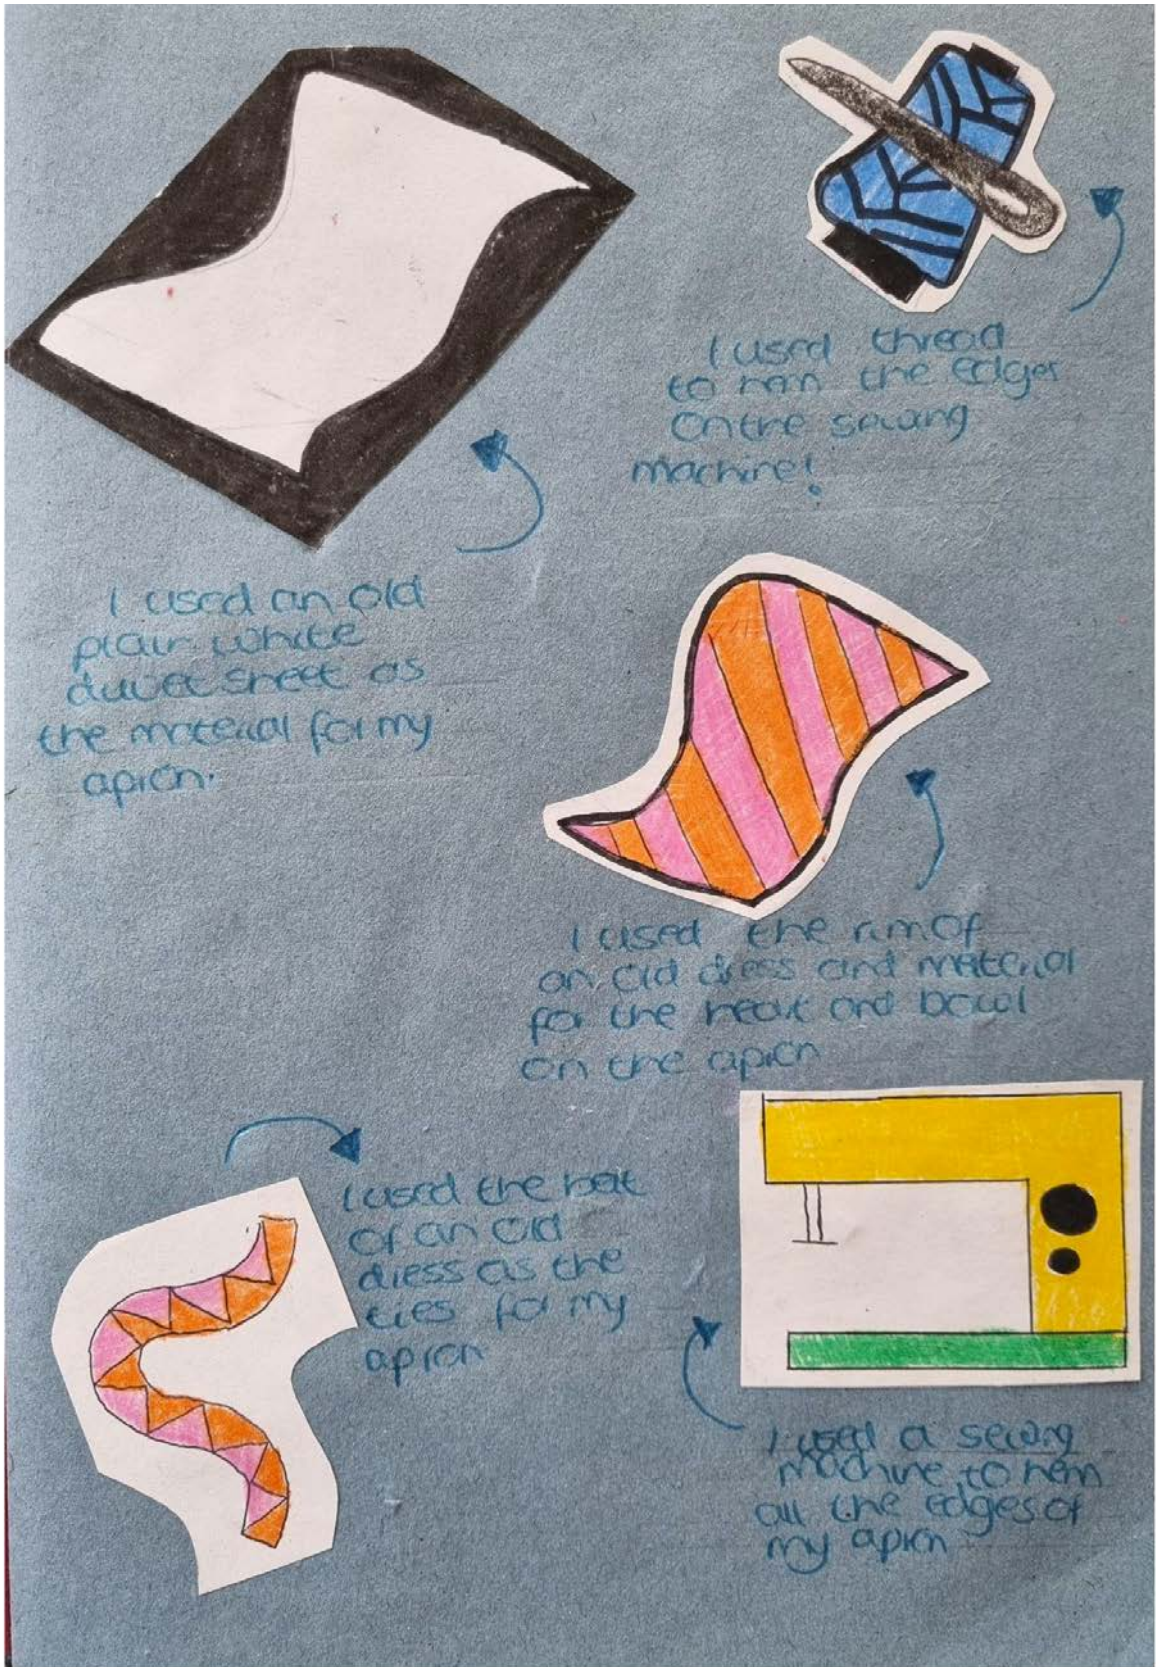 I used thread
to hem the edges
on the sewing
machine!
I used an old
plain white
duvet sheet as
the material for my
apron.
I used the rim of
an old dress and material
for the heart and bowl
on the apron
I used the belt
of an old
dress as the
ties for my
apron
I used a sewing
machine to hem
all the edges of
my apron